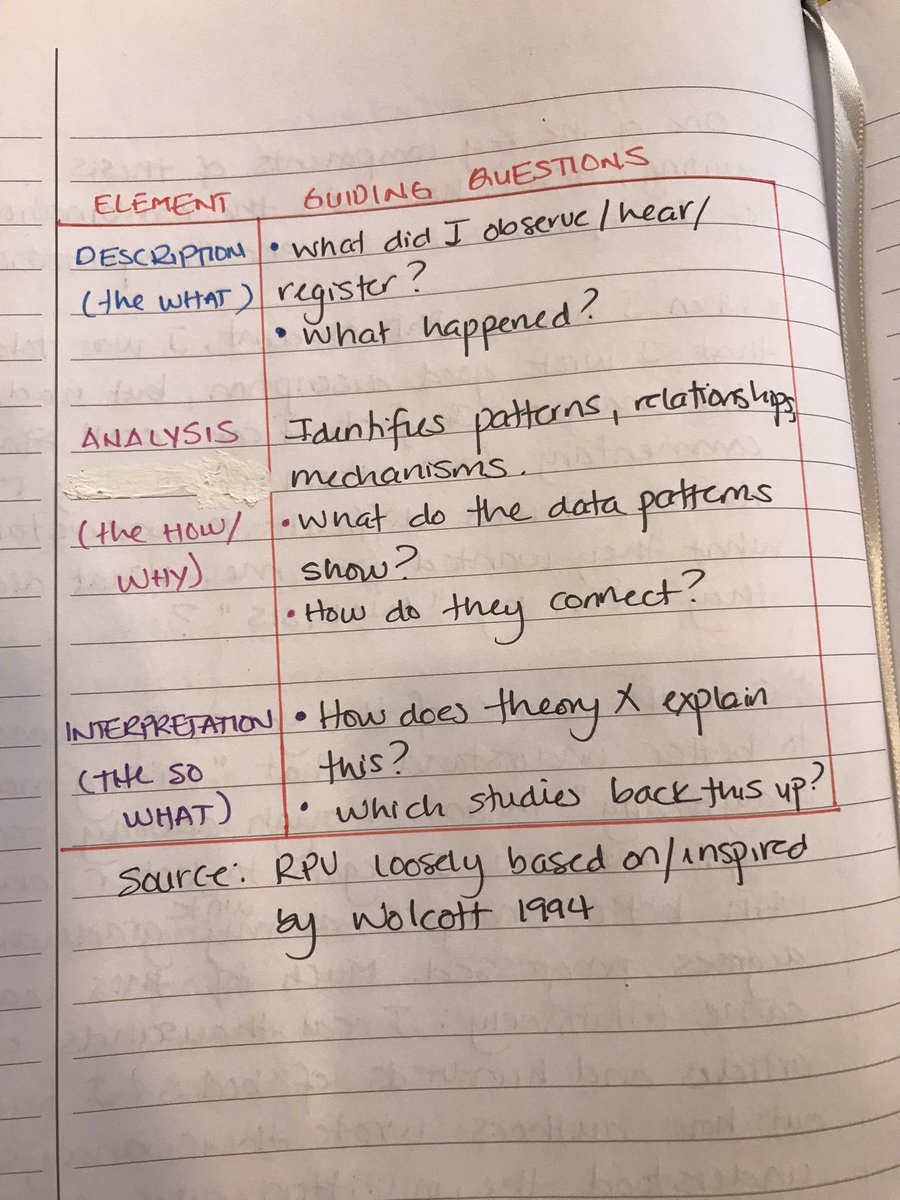 ELEMENT GUIDING QUESTIONS
DESCRIPTION • What did I observe/hear/
(the WHAT) register?
• What happened?
ANALYSIS Identifies patterns, relationships,
mechanisms.
(the HOW/ • What do the data patterns
WHY) show?
• How do they connect?
INTERPRETATION • How does theory X explain
(THE SO this?
WHAT) • Which studies back this up?
Source: RPV loosely based on/inspired
by Wolcott 1994